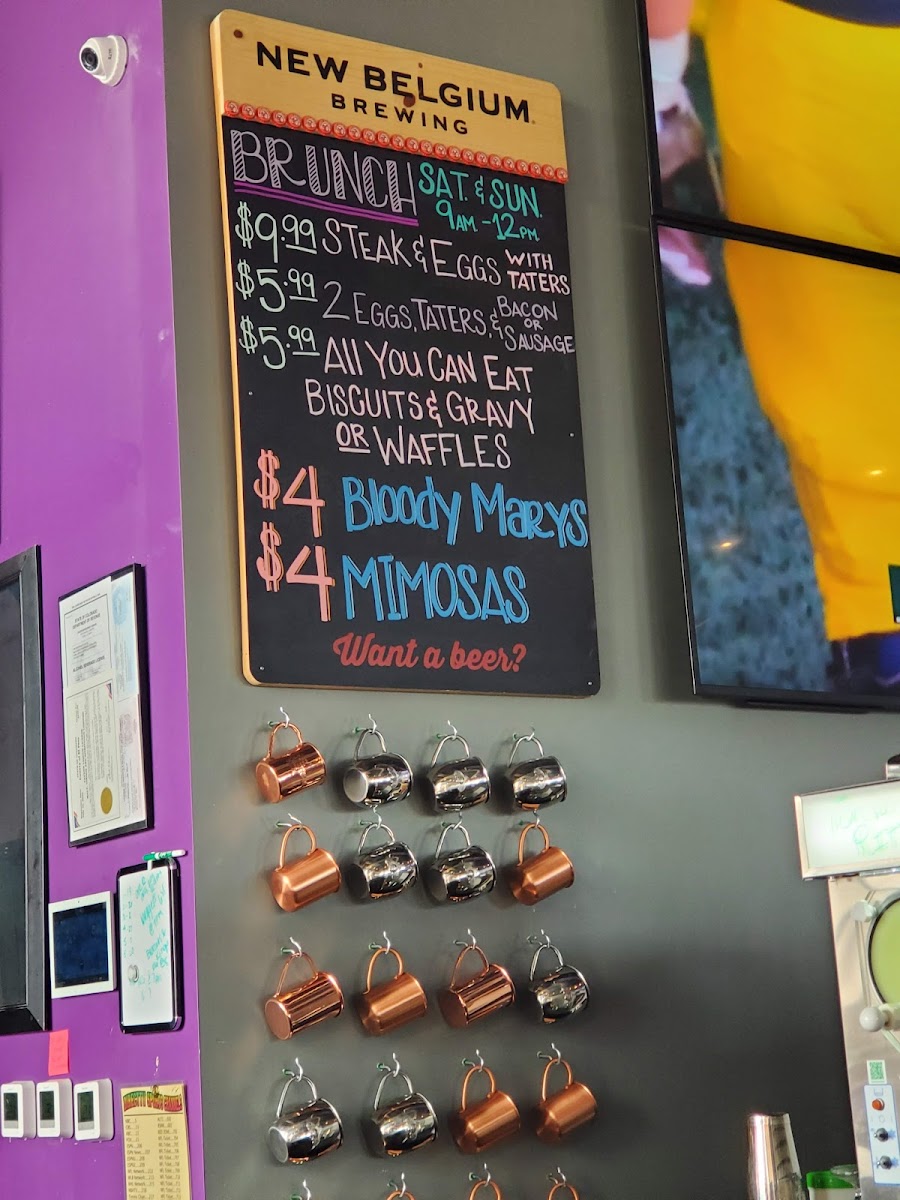 NEW BELGIUM
BREWING
BRUNCH SAT. & SUN.
9AM - 12PM
$9.99 STEAK & EGGS WITH TATERS
$5.99 2 EGGS, TATERS, & BACON OR SAUSAGE
$5.99 All YOU CAN EAT
BISCUITS & GRAVY
OR WAFFLES
$4 Bloody MARYS
$4 MIMOSAS
Want a beer?